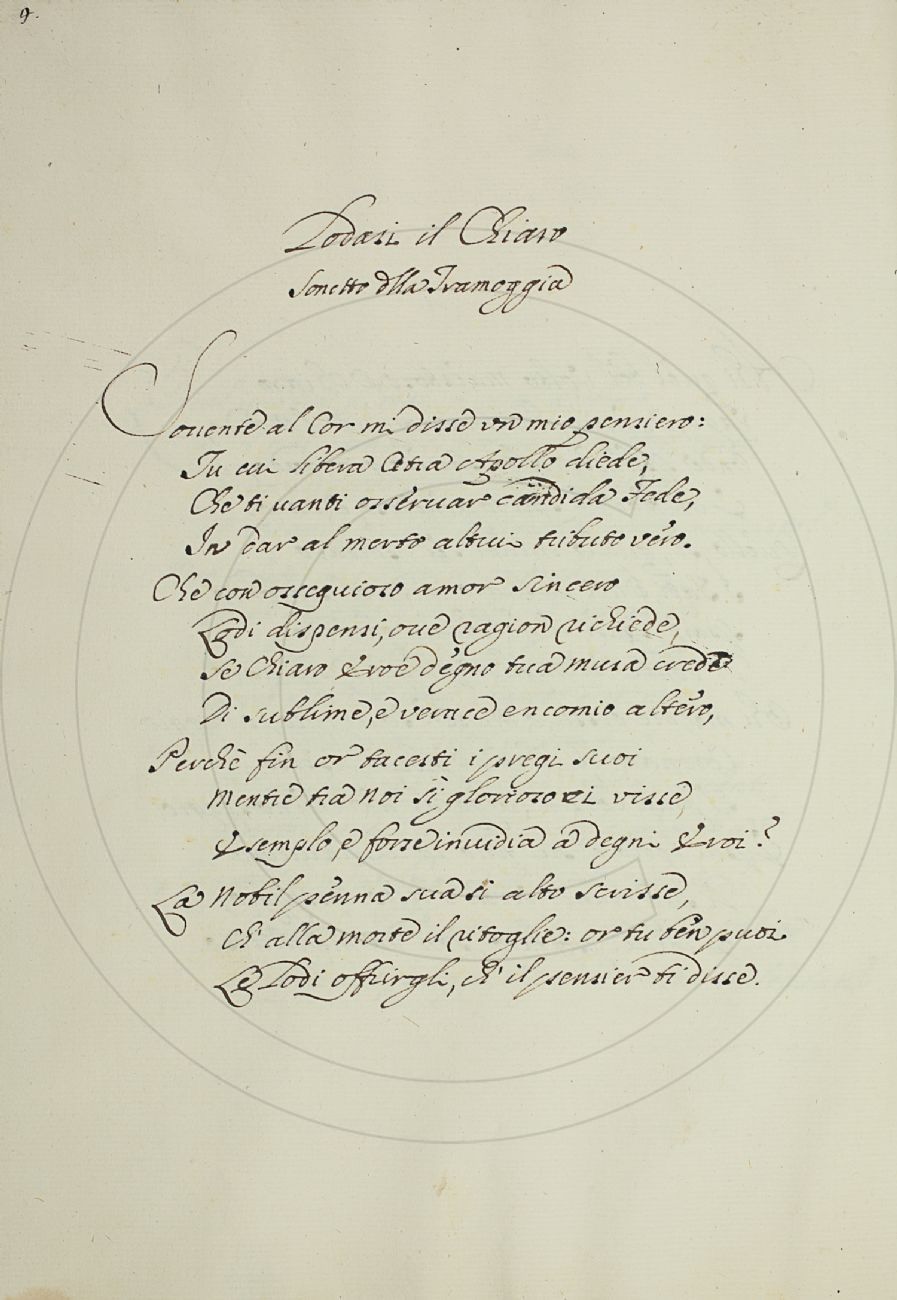 9.
Lodasi il Chiaro
Sonetto dlla Tramoggia
Souente al Cor mi disse un mio pensiero:
Tu cui libera Cetra Apollo diede,
Che ti uanti osseruar candida Fede,
In dar al merto altrui tributo vero.
Che con ossequioso amor sincero
Lodi dispensi, oue ragion richiede,
Se Chiaro Eroe degno tua musa crede
Di sublime, e verace encomio altero,
Perchè fin or tacesti i pregi suoi
Mentre tra noi sì glorioso ei visse
Esemplo, e forse inuidia a degni Eroi?
La Nobil penna sua sì alto scrisse,
Ch' alla morte il ritoglie: or tu ben puoi
Le Lodi offrirgli, ch' il pensier ti disse.